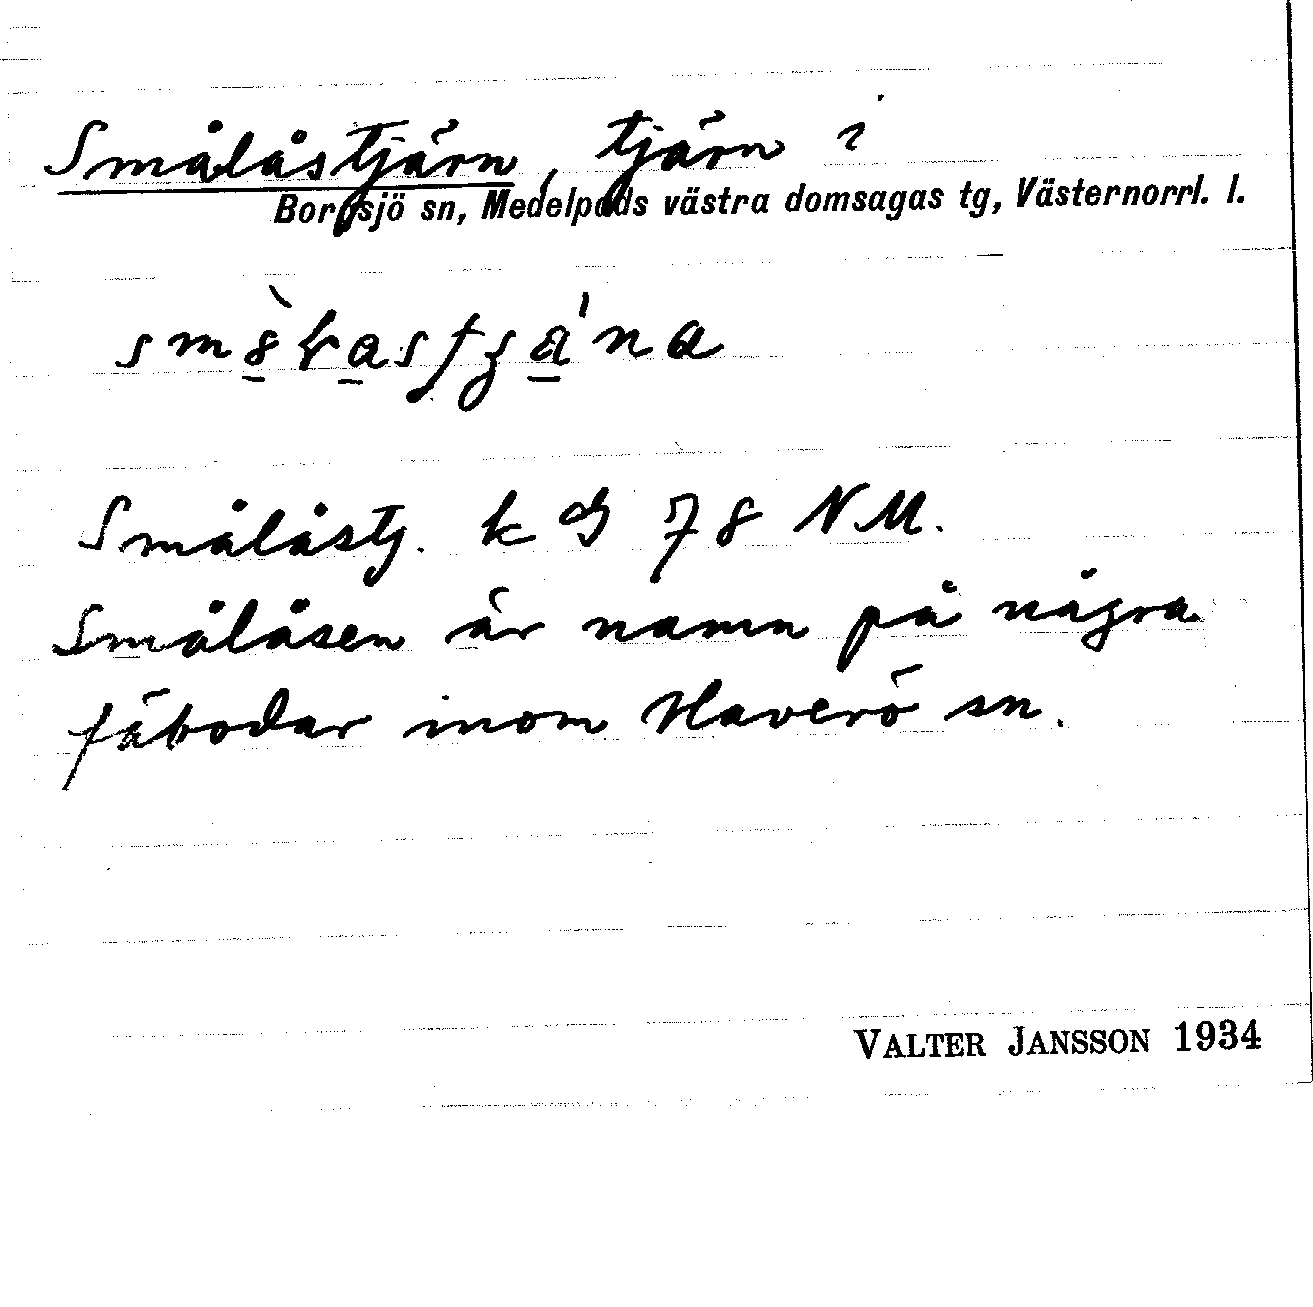 Smålåstjärn, tjärn i
Borgsjö sn, Medelpads västra domsagas tg, Västernorrl. l.
Smålåstj. k
78 NM.
Smålåsen är namn på några
fäbodar inom Haverö sn.
VALTER JANSSON 1934